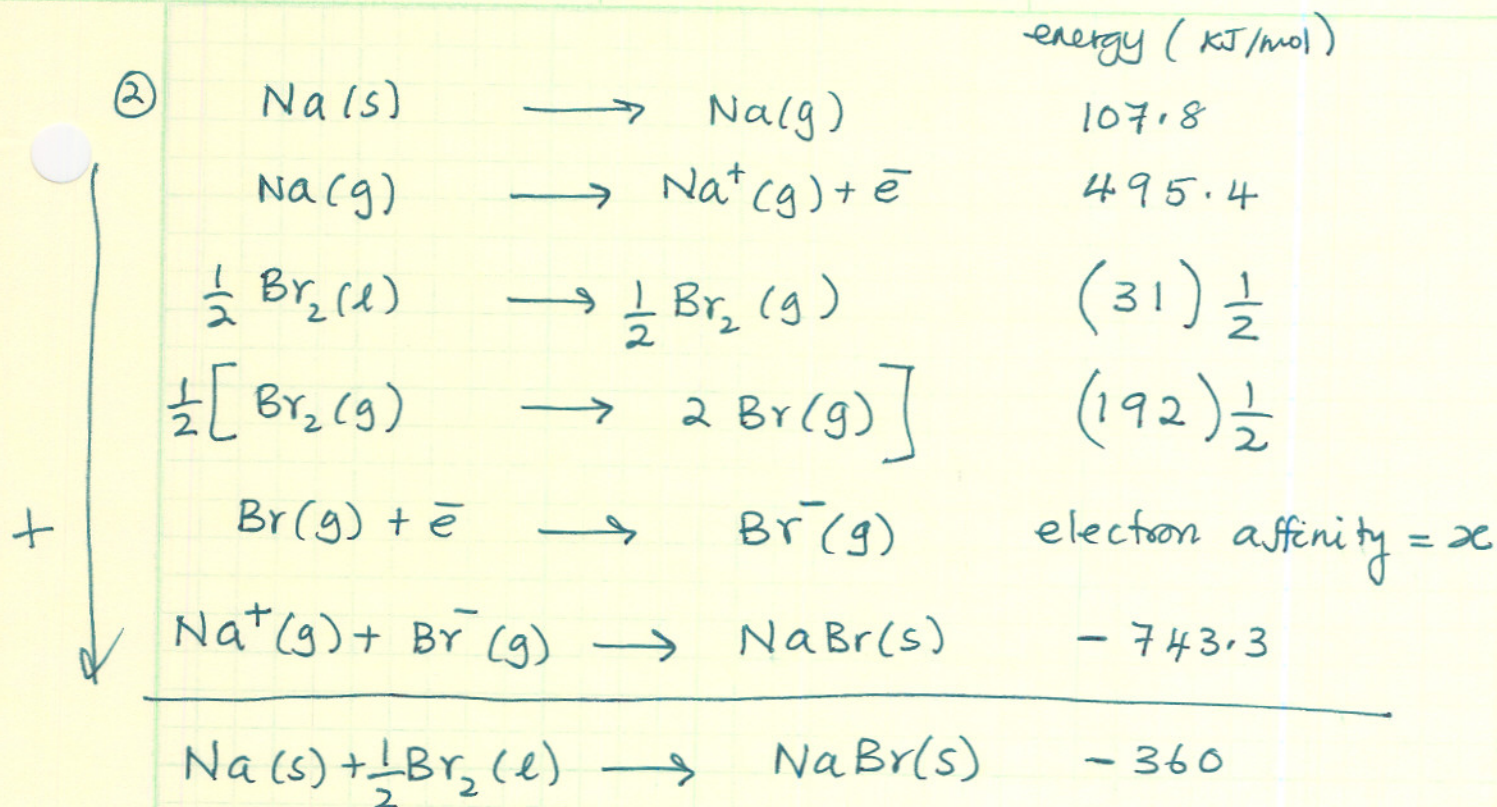 energy (KJ/mol)
② Na(s) ⟶ Na(g) 107.8
Na(g) ⟶ Na⁺(g) + e̅ 495.4
½ Br₂(l) ⟶ ½ Br₂(g) (31) ½
½[Br₂(g) ⟶ 2 Br(g)] (192) ½
+ Br(g) + e̅ ⟶ Br⁻(g) electron affinity = x
Na⁺(g) + Br⁻(g) ⟶ NaBr(s) - 743.3
Na(s) + ½Br₂(l) ⟶ NaBr(s) - 360